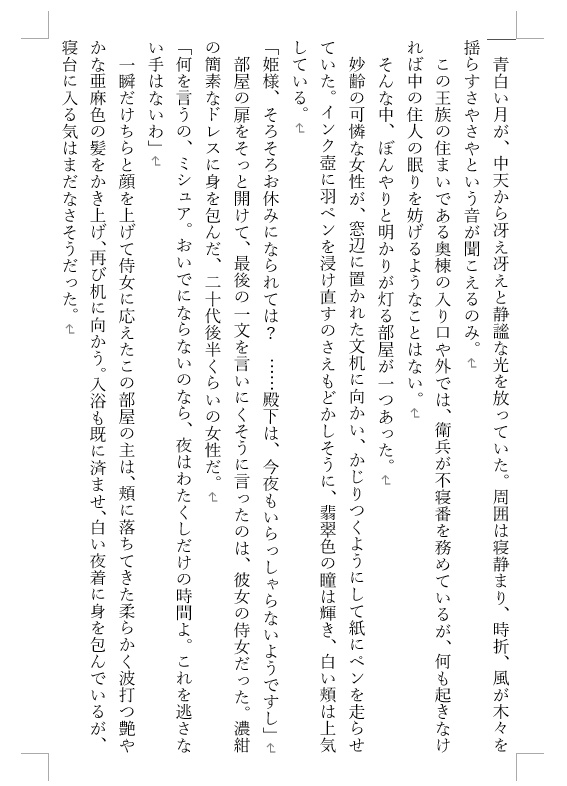 青白い月が、中天から冴え冴えと静謐な光を放っていた。周囲は寝静まり、時折、風が木々を
揺らすさやさやという音が聞こえるのみ。
　この王族の住まいである奥棟の入り口や外では、衛兵が不寝番を務めているが、何も起きなけ
れば中の住人の眠りを妨げるようなことはない。
　そんな中、ぼんやりと明かりが灯る部屋が一つあった。
　妙齢の可憐な女性が、窓辺に置かれた文机に向かい、かじりつくようにして紙にペンを走らせ
ていた。インク壺に羽ペンを浸け直すのさえもどかしそうに、翡翠色の瞳は輝き、白い頬は上気
している。
「姫様、そろそろお休みになられては？　……殿下は、今夜もいらっしゃらないようですし」
　部屋の扉をそっと開けて、最後の一文を言いにくそうに言ったのは、彼女の侍女だった。濃紺
の簡素なドレスに身を包んだ、二十代後半くらいの女性だ。
「何を言うの、ミシュア。おいでにならないのなら、夜はわたくしだけの時間よ。これを逃さな
い手はないわ」
　一瞬だけちらと顔を上げて侍女に応えたこの部屋の主は、頬に落ちてきた柔らかく波打つ艶や
かな亜麻色の髪をかき上げ、再び机に向かう。入浴も既に済ませ、白い夜着に身を包んでいるが、
寝台に入る気はまだなさそうだった。